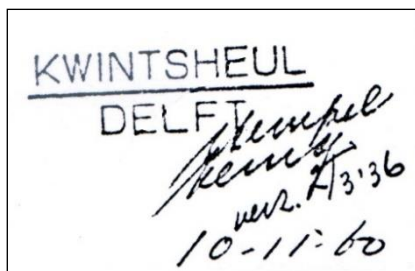 KWINTSHEUL
DELFT
stempel
verz. 2/3'36
10-11-60